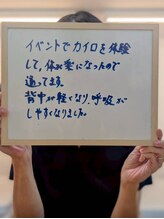 イベントでカイロを体験
して、体が楽になったので
通ってます。
背中が軽くなり、呼吸が
しやすくなりました。